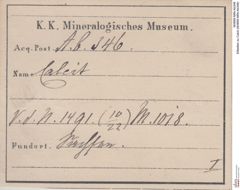 K. K. Mineralogisches Museum.
Acq. Post. A. b. 546.
Name Calcit
V. d. N. 1491. (10/22) M. 1018.
Fundort. Sachsen.
I